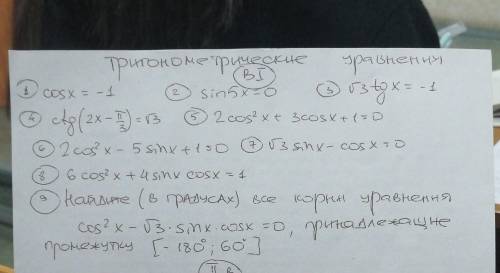 Тригонометрические уравнения
ВI
① cosx = -1 ② sin5x=0 ③ √3 tgx = -1
④ ctg(2x-π/3)=√3 ⑤ 2cos²x + 3cosx+1=0
⑥ 2cos²x - 5sinx+1=0 ⑦ √3 sinx - cosx=0
⑧ 6cos²x + 4sinx cosx = 1
⑨ Найдите (в градусах) все корни уравнения
cos²x - √3·sinx·cosx=0, принадлежащие
промежутку [-180°; 60°]